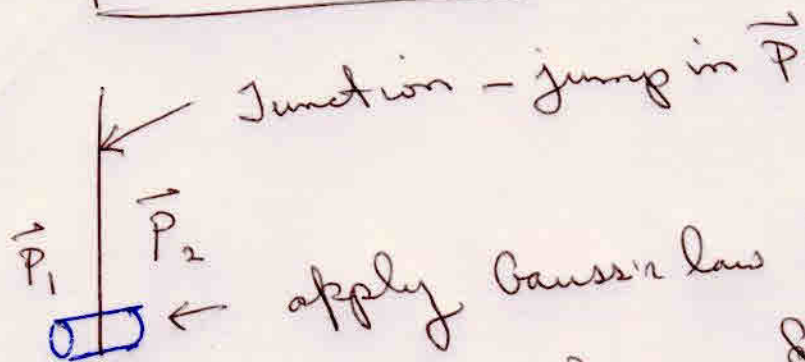 Junction - jump in P⃗
P⃗₁ P⃗₂
← apply Gauss's law